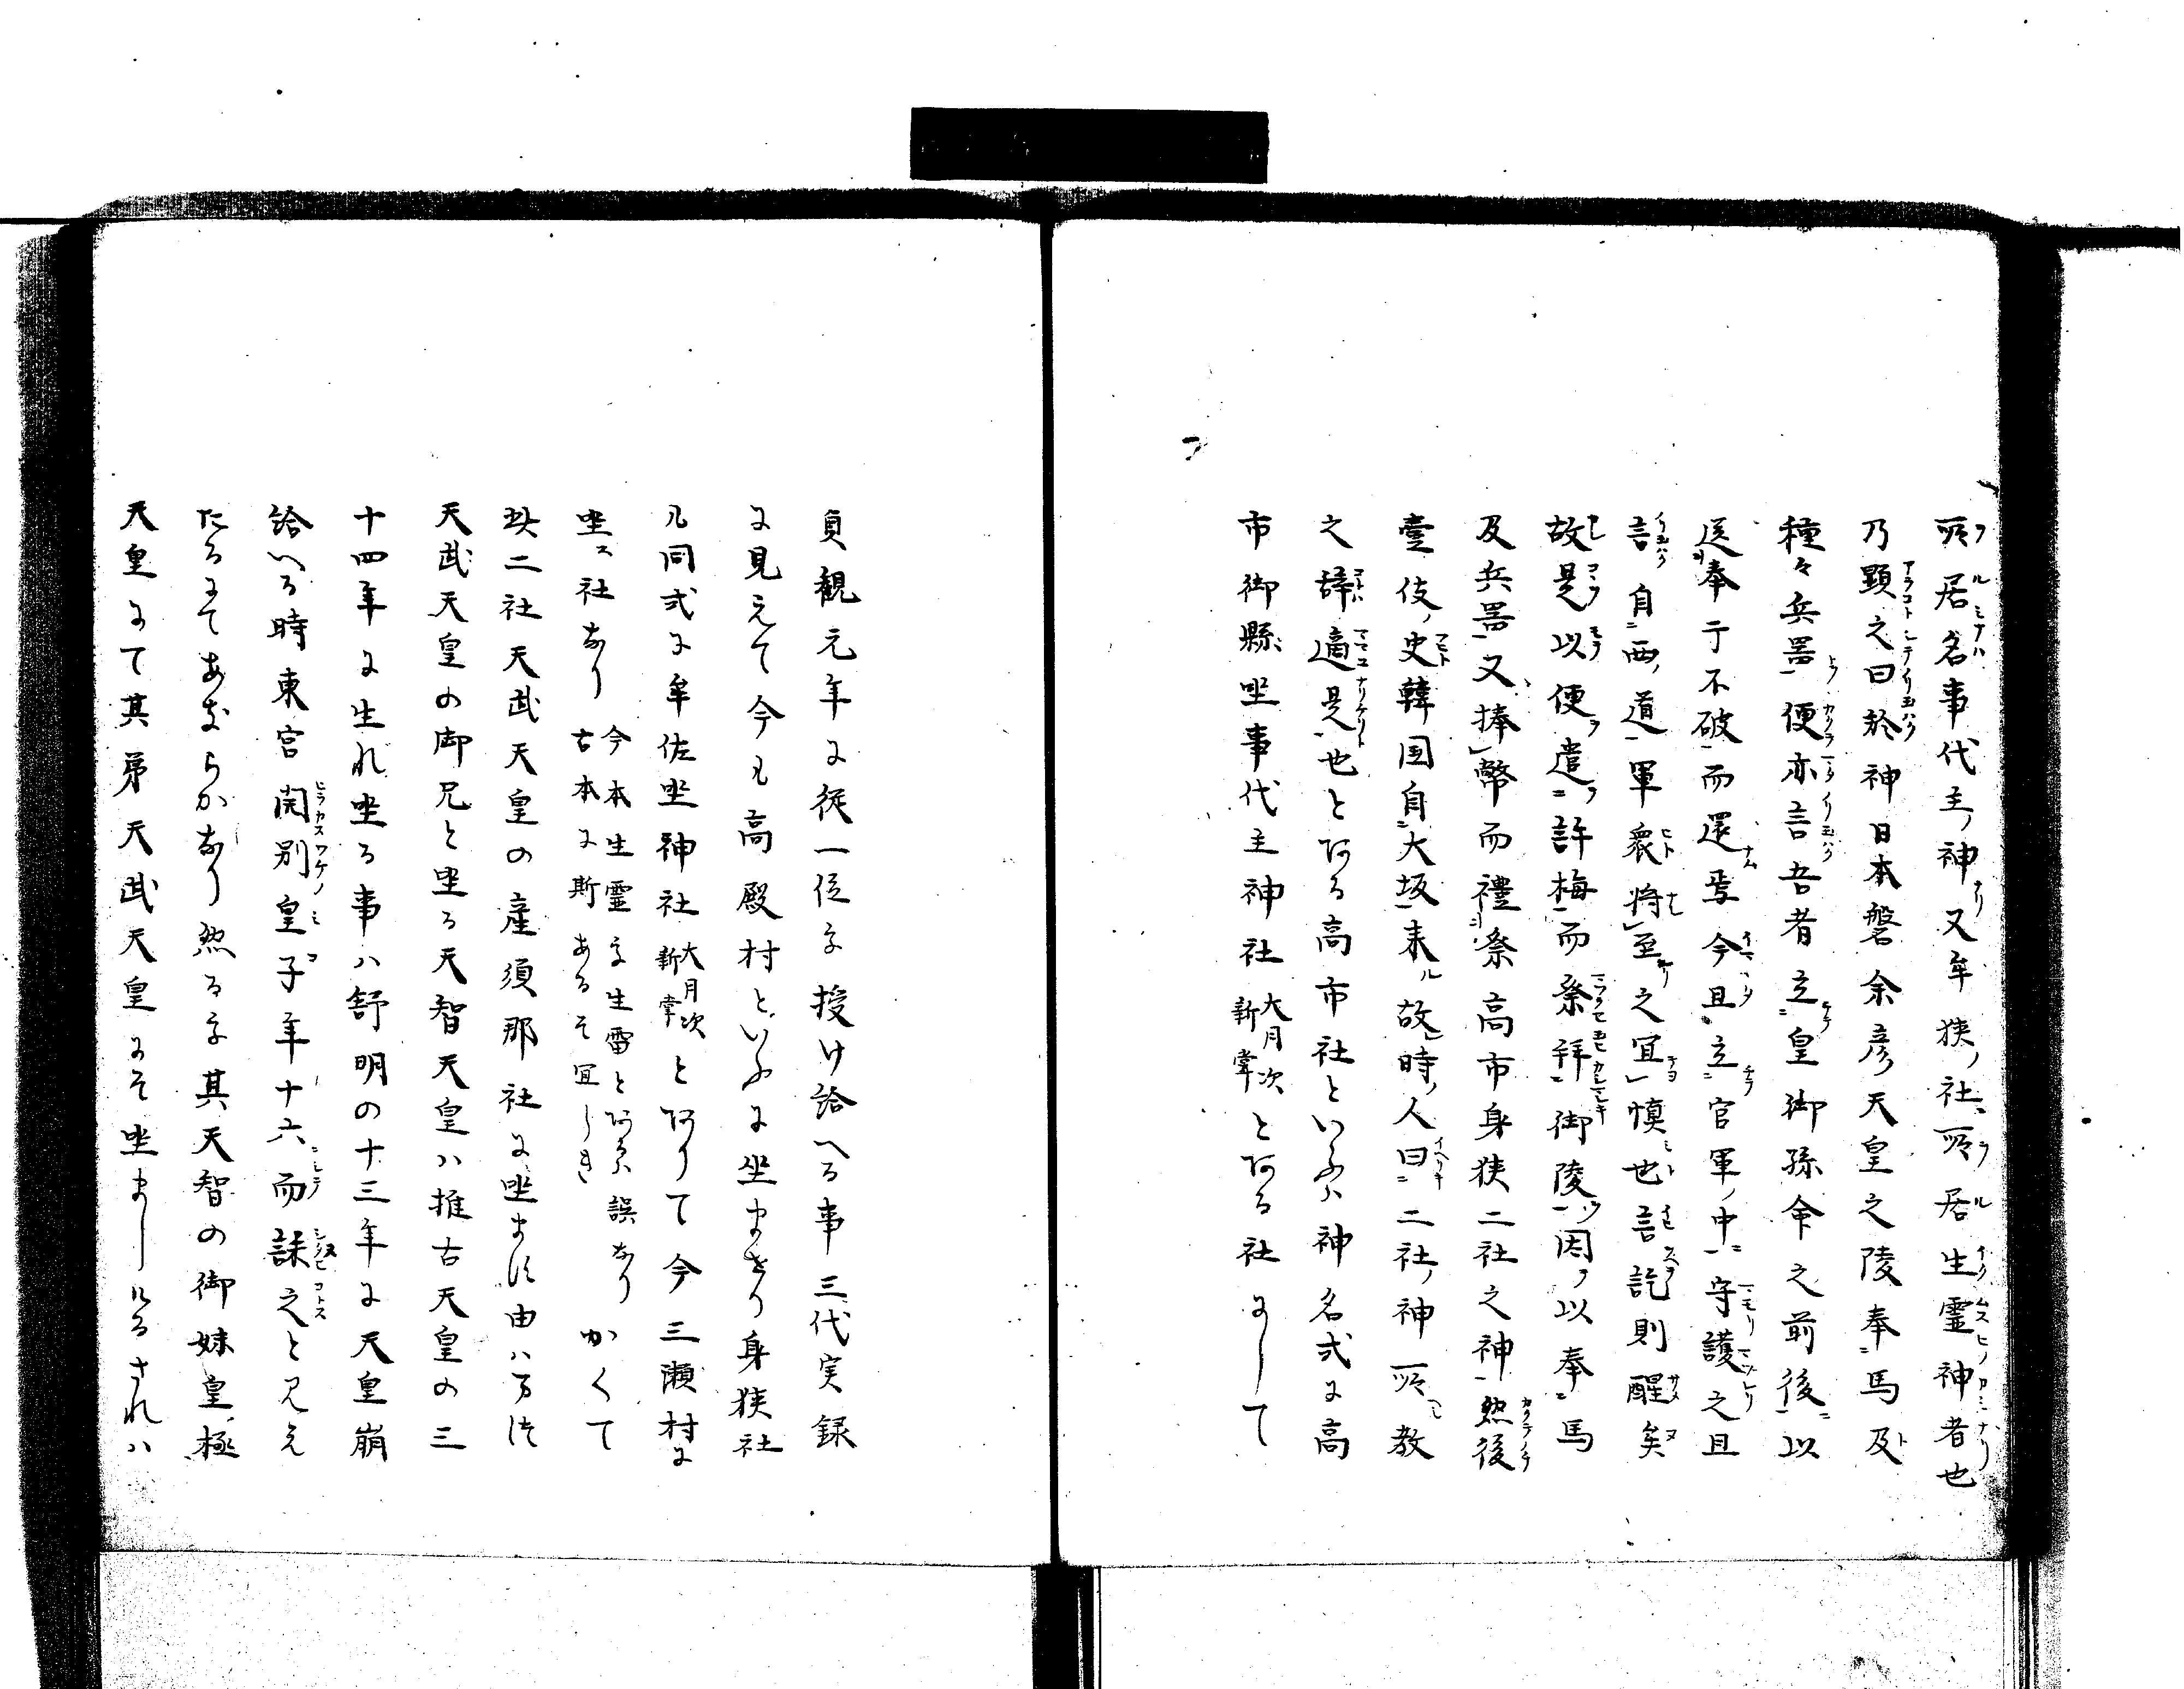 所居名事代主神又牟狭社所居生霊神者也
乃顕之曰於神日本磐余彦天皇之陵奉馬及
種々兵器便亦言吾者立皇御孫命之前後以
送奉于不破而還焉今且立官軍中守護之且
言自西道軍衆将至之宜慎也言訖則醒矣
故是以便遣許梅而祭拝御陵因以奉馬
及兵器又捧幣而禮祭高市身狭二社之神然後
壹伎史韓国自大坂来故時人曰二社神所教
之辞適是也とある高市社といふハ神名式に高
市御縣坐事代主神社大月次新甞とある社にして
貞観元年に従一位を授け給へる事三代実録
に見えて今も高殿村といふに坐ませり身狭社
も同式に牟佐坐神社大月次新甞とありて今三瀬村に
坐ス社なり今本生霊を生雷とあるハ誤なり古本に斯あるそ宜しきかくて
此二社天武天皇の産須那社に坐ます由ハまつ
天武天皇の御兄と坐る天智天皇ハ推古天皇の三
十四年に生れ坐る事ハ舒明の十三年に天皇崩
給へる時東宮開別皇子年十六而誄之と見え
たるにてあきらかなり然るを其天智の御妹皇極
天皇にて其弟天武天皇にそ坐ましけるされハ